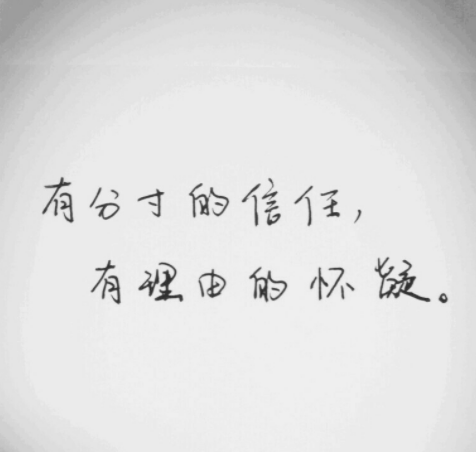 有分寸的信任，
有理由的怀疑。